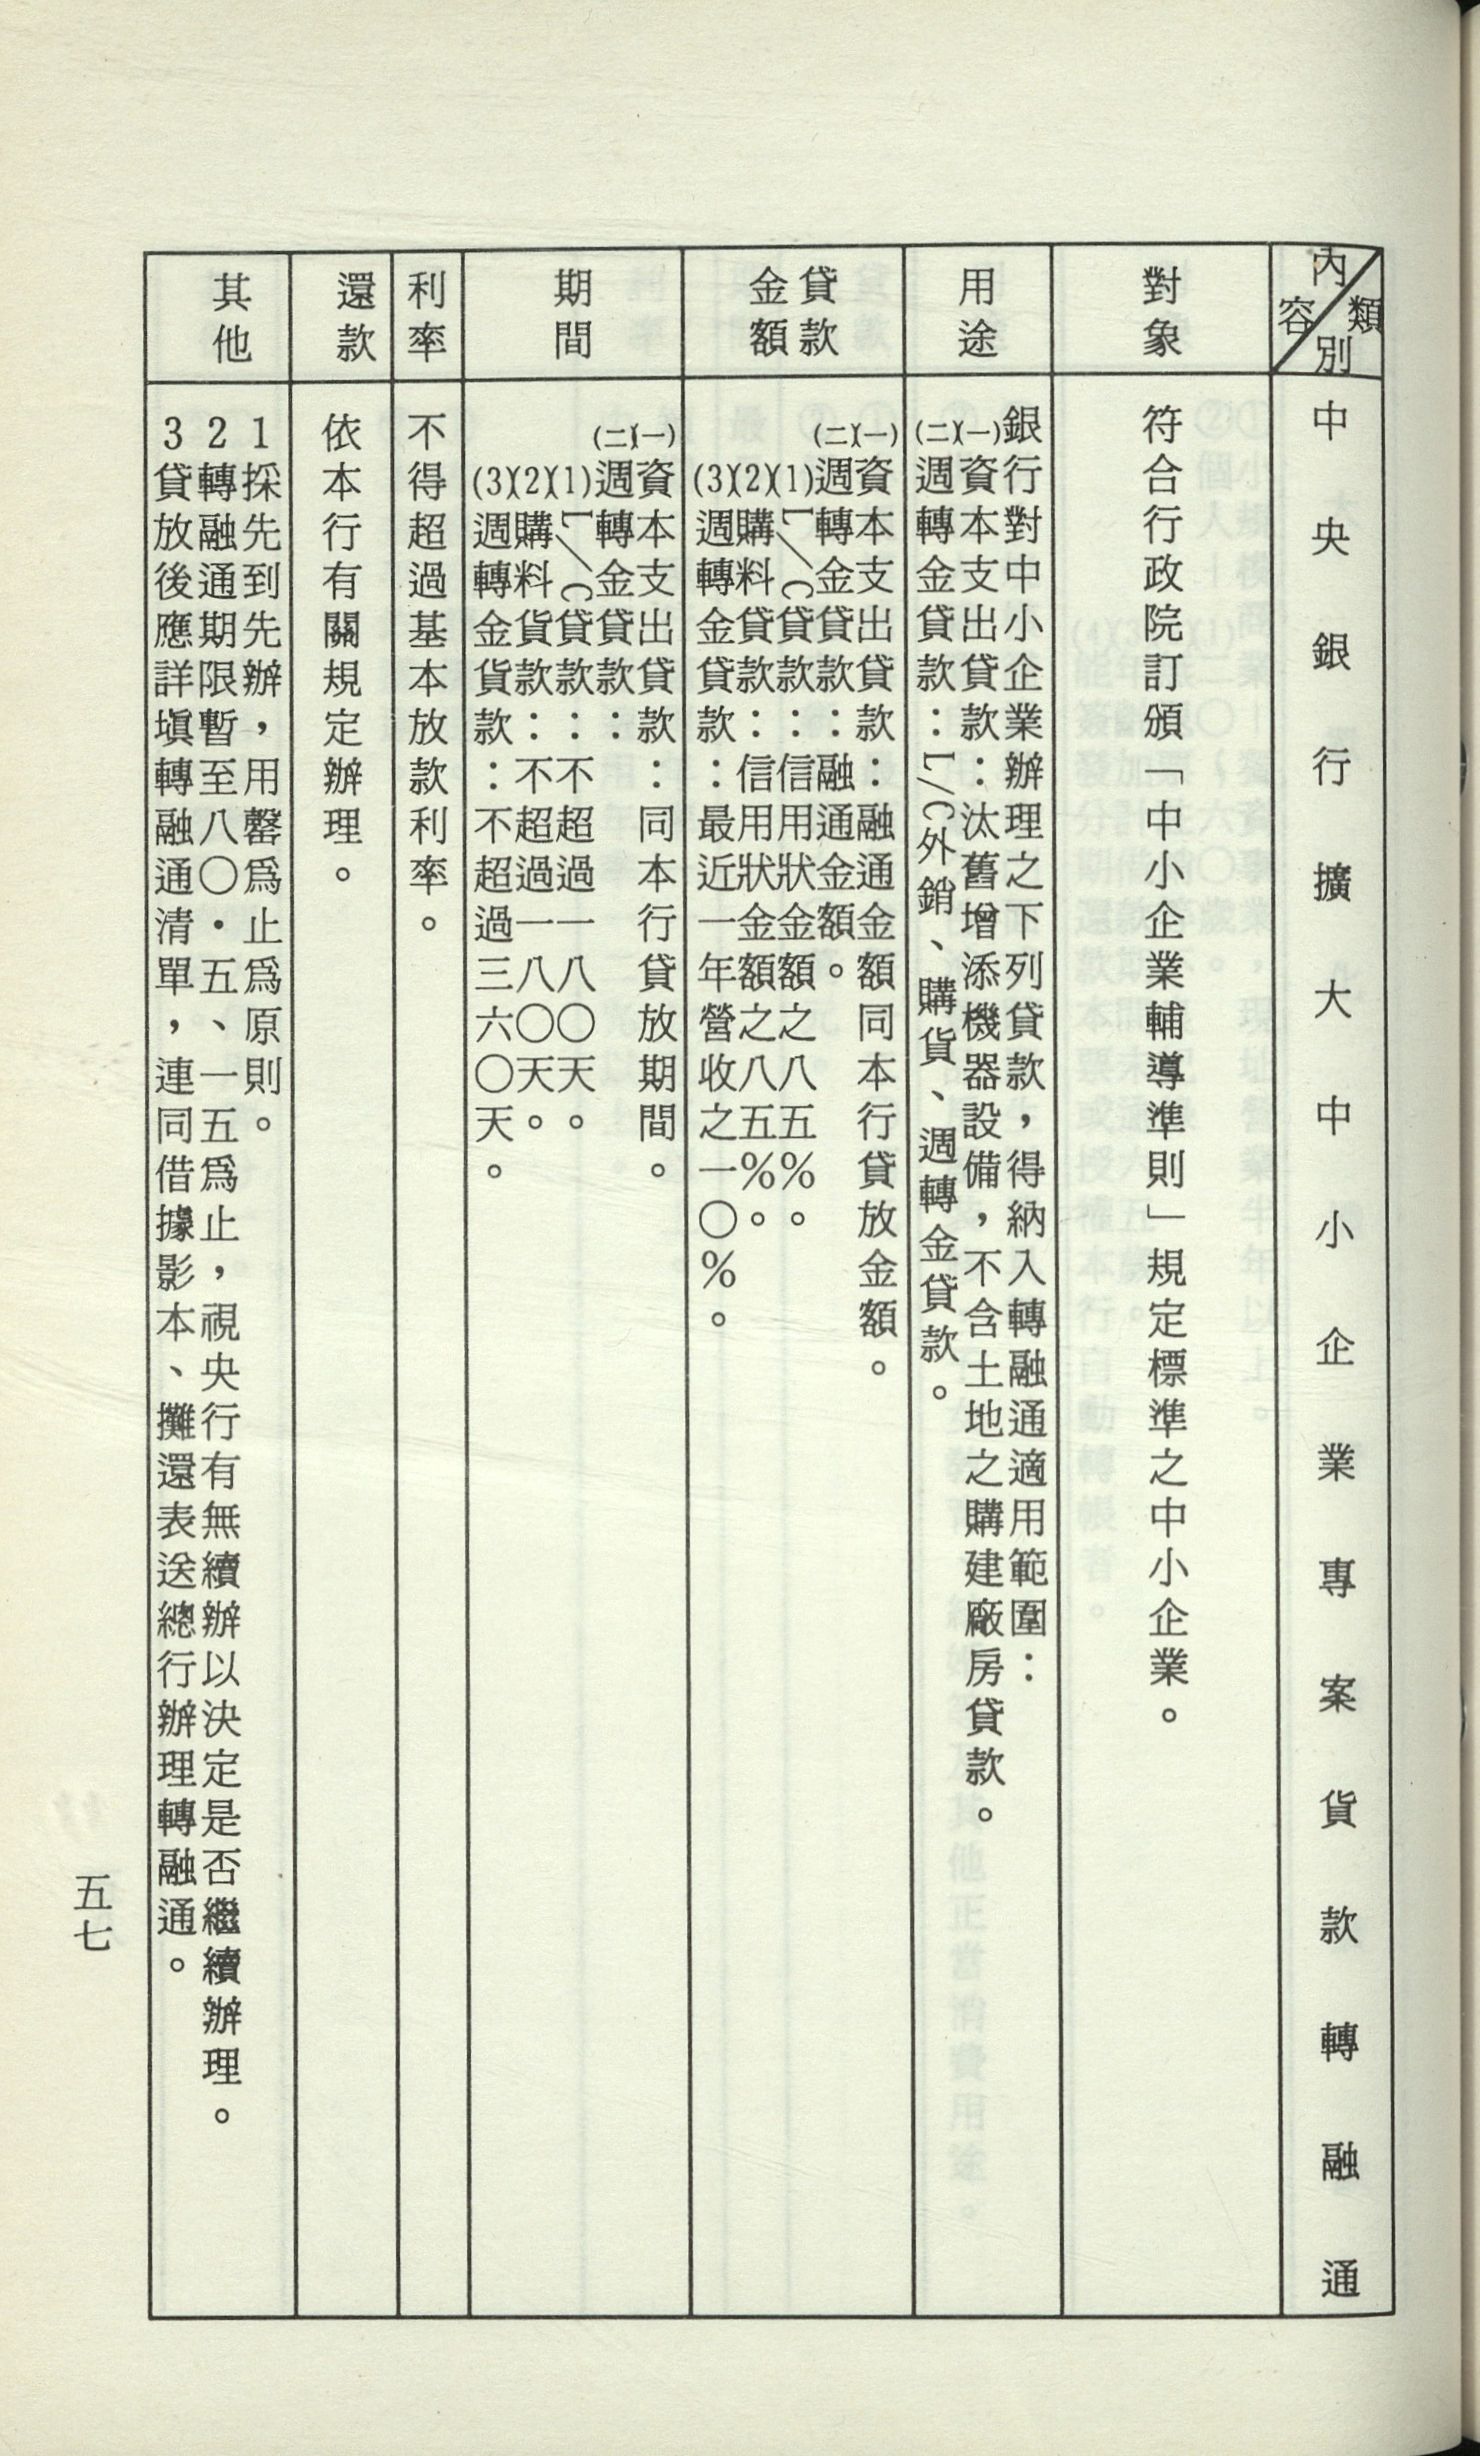 類別
內容
中央銀行擴大中小企業專案貨款轉融通
對象
符合行政院訂頒「中小企業輔導準則」規定標準之中小企業。
用途
銀行對中小企業辦理之下列貸款，得納入轉融通適用範圍：
(一)資本支出貸款：汰舊增添機器設備，不含土地之購建廠房貸款。
(二)週轉金貸款：L/C外銷、購貨、週轉金貸款。
貸款金額
(一)資本支出貸款：融通金額同本行貸放金額。
(二)週轉金貸款：融通金額。
(1)L/C貸款：信用狀金額之八五%。
(2)購料貸款：信用狀金額之八五%。
(3)週轉金貸款：最近一年營收之一〇%。
期間
(一)資本支出貸款：同本行貸放期間。
(二)週轉金貸款：
(1)L/C貸款：不超過一八〇天。
(2)購料貨款：不超過一八〇天。
(3)週轉金貨款：不超過三六〇天。
利率
不得超過基本放款利率。
還款
依本行有關規定辦理。
其他
1採先到先辦，用罄為止為原則。
2轉融通期限暫至八〇・五、一五為止，視央行有無續辦以決定是否繼續辦理。
3貸放後應詳塡轉融通清單，連同借據影本、攤還表送總行辦理轉融通。
五七